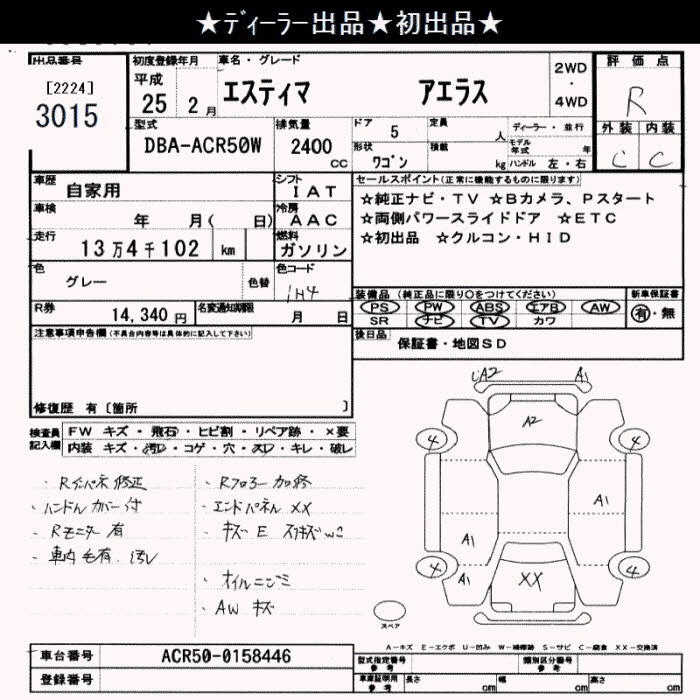 ★ディーラー出品★初出品★
出品番号 初度登録年月 車名・グレード 評価点
[2224] 平成 2WD
3015 25 2月 エスティマ アエラス ・ R
4WD
型式 排気量 ドア 5 定員 人 ディーラー・並行 外装 内装
DBA-ACR50W 2400 cc 形状 ワゴン 積載 kg モデル年式 年 C C
ハンドル 左・右
車歴 自家用 シフト IAT セールスポイント(正常に機能するものに限ります)
車検 年 月( 日) 冷房 AAC ☆純正ナビ・TV ☆Bカメラ、Pスタート
☆両側パワースライドドア ☆ETC
走行 13万4千102 km 燃料 ガソリン ☆初出品 ☆クルコン・HID
色 グレー 色替 色コード 1H4
装備品 (純正品に限り○をつけてください) 新車保証書
R券 14,340円 名変通知期限 月 日 PS PW ABS エアB AW 有・無
SR ナビ TV カワ
注意事項申告欄(不具合内容等は具体的に記入して下さい) 後日品 保証書・地図SD
修復歴 有〔箇所 〕
検査員記入欄 FW キズ・飛石・ヒビ割・リペア跡・×要
内装 キズ・汚れ・コゲ・穴・スレ・キレ・破レ
・Rインパネ修正 ・Rフロアー加修
・ハンドルカバー付 ・エンドパネルXX
・Rモニター有 ・キズ E スリキズW2
・車内毛有、汚レ
・オイルニジミ
・AWキズ
A2 A1
A2
4 4
A1
A1
4 4
A1 XX
スペア
A-キズ E-エクボ U-凹み W-補修跡 S-サビ C-腐食 XX-交換済
車台番号 ACR50-0158446 型式指定番号 参考 類別区分番号 参考
登録番号 車庫証明用 参考 長さ cm 幅 cm 高さ cm